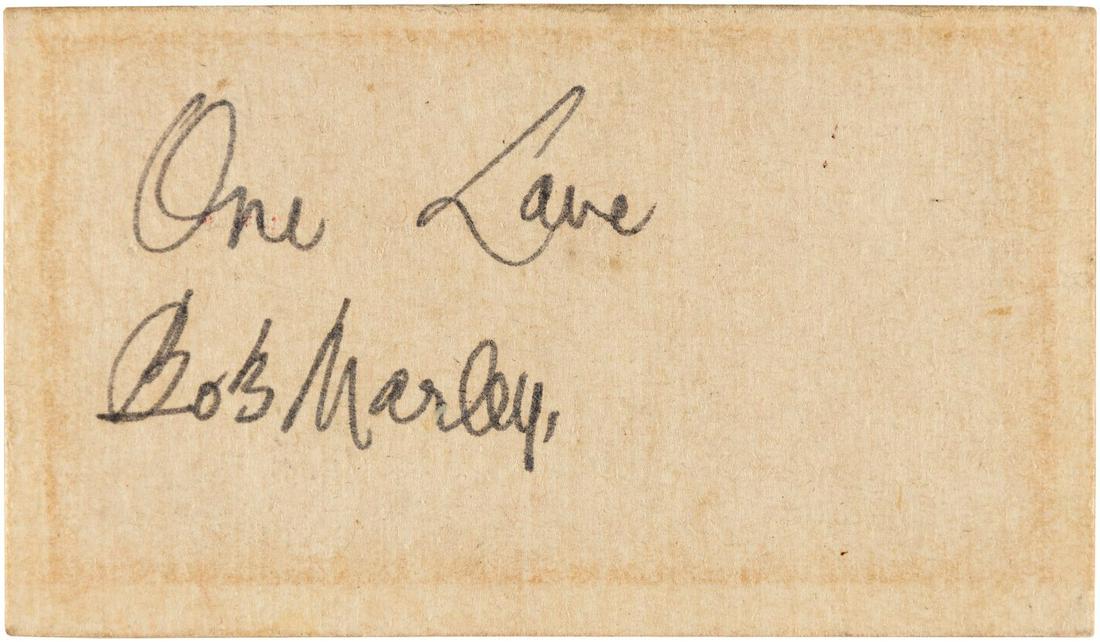 One Love
Bob Marley,